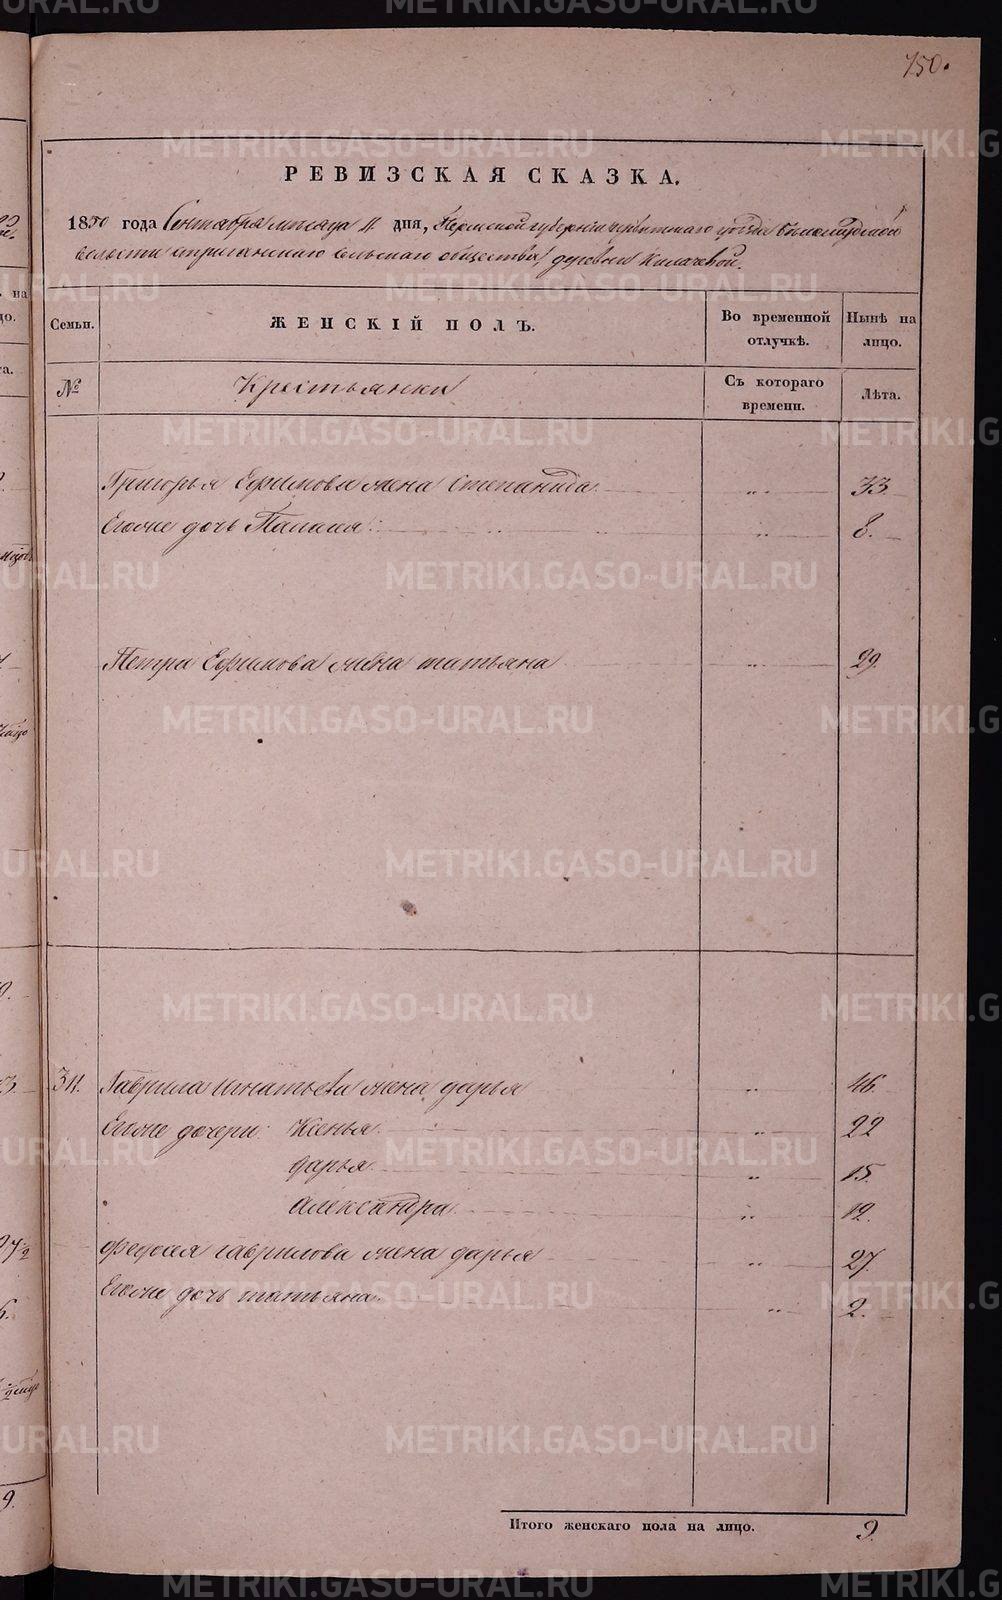 150.
РЕВИЗСКАЯ СКАЗКА.
1850 года Сентября месяца 11 дня, Пермской губернии уезда
волости сельского общества, деревни Калачевой.
Семьи. ЖЕНСКІЙ ПОЛЪ. Во временной отлучкѣ. Нынѣ на лицо.
№ Крестьянки Съ котораго времени. Лѣта.
Григорья Ефимова жена Степанида 33
Егоже дочь 8.
Петра Ефимова жена татьяна 29.
311. Гаврила игнатьева жена дарья 46.
Егоже дочери: Ксенья 22
дарья 15.
александра 12.
федосея гаврилова жена дарья 27
Егоже дочь татьяна 2.
Итого женскаго пола на лицо. 9.
METRIKI.GASO-URAL.RU